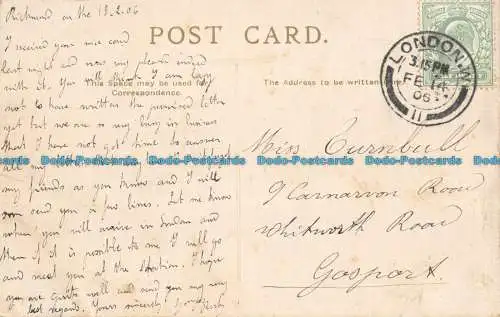 Richmond on the 12.2.06
POST CARD.
I received your nice card
last night and now my please indeed
with it. You will think I am lazy
not to have written the promised letter
yet but we are so very busy in business
that I have not got time to answer
all my
my friends as you know and I will
send you a few lines. Let me know
when you will arrive in London and
then if it is possible to me I will go
and meet you at the station. I hope
you are quite well and send you my very
best regards. Yours sincerely
This space may be used for
Correspondence.
The Address to be written
LONDON.W
3.15 PM
FE
06
11
Miss Turnbull
9 Carnarvon Road
Whitworth Road
Gosport.
Dodo-Postcards Dodo-Postcards Dodo-Postcards Dodo-Postcards Dodo-Postcards